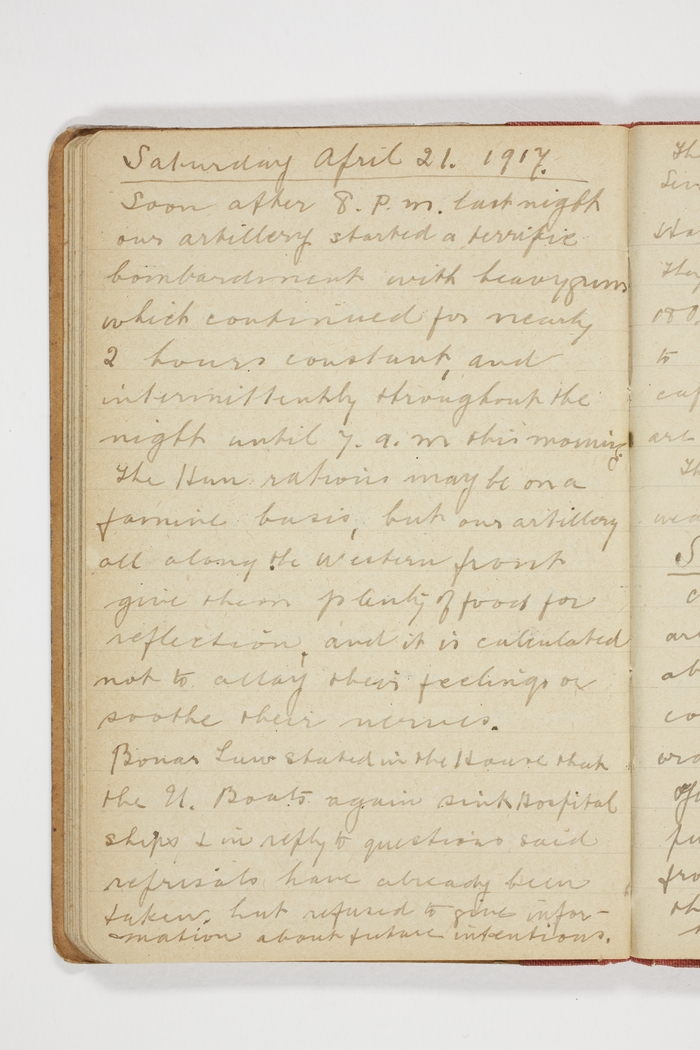 Saturday April 21. 1917.
Soon after 8. P. m. last night
our artillery started a terrific
bombardment with heavy guns
which continued for nearly
2 hours constant, and
intermittently throughout the
night until 7. a. m this morning
The Hun rations may be on a
famine basis, but our artillery
all along the Western front
give them plenty of food for
reflection, and it is calculated
not to allay their feelings or
soothe their nerves.
Bonar Law stated in the House that
the U. Boats again sink Hospital
ships & in reply to questions said
reprisals have already been
taken, but refused to give infor-
mation about future intentions.
Th
Sin
they
180
to
cap
are
Th
wea
S
c
are
ab
co
fro